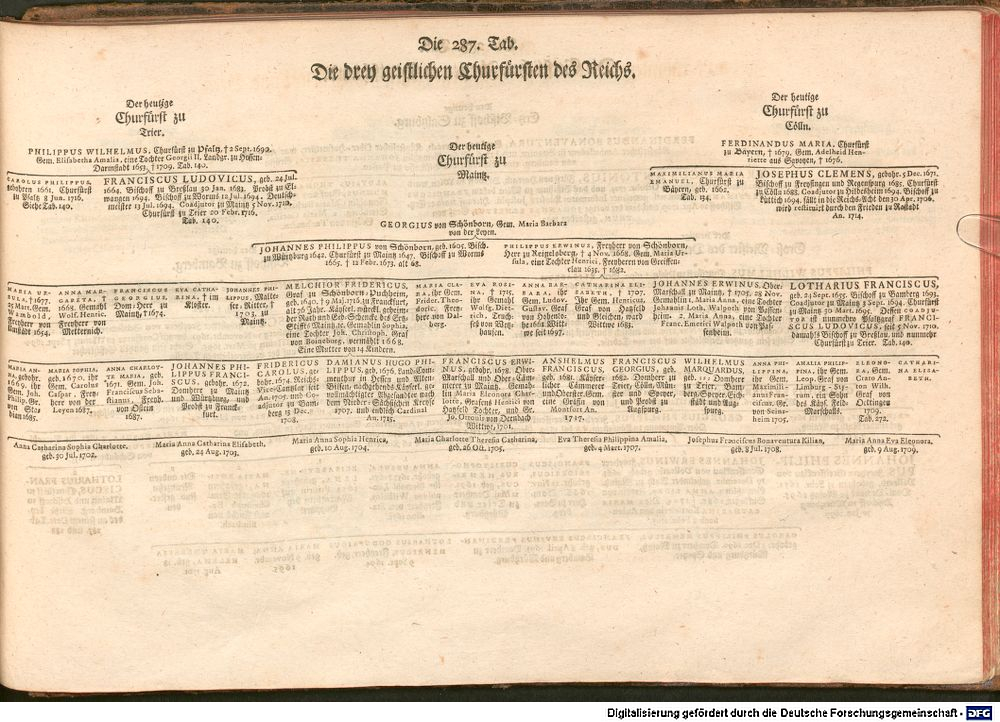 Die 287. Tab.
Die drey geistlichen Churfürsten des Reichs.
Der heutige
Churfürst zu
Trier.
PHILIPPUS WILHELMUS, Churfürst zu Pfaltz, † 2 Sept. 1690.
Gem. Elisabetha Amalia, eine Tochter Georgii II. Landgr. zu Hessen-
Darmstadt 1653, † 1709. Tab. 140.
CAROLUS PHILIPPUS,
gebohren 1661. Churfürst
zu Pfaltz 8 Jun. 1716.
Siehe Tab. 140.
FRANCISCUS LUDOVICUS, geb. 24 Jul.
1664. Bischoff zu Breßlau 30 Jan. 1683. Probst zu El-
wangen 1694. Bischoff zu Worms 12 Jul. 1694. Hoch-
meister 13 Jul. 1694. Coadjutor zu Mayntz 5 Nov. 1710.
Churfürst zu Trier 20 Febr. 1716.
Tab. 140.
Der heutige
Churfürst zu
Mayntz.
GEORGIUS von Schönborn, Gem. Maria Barbara
von der Leyen.
JOHANNES PHILIPPUS von Schönborn, geb. 1605. Bisch.
zu Würtzburg 1642. Churfürst zu Mayntz 1647. Bischoff zu Worms
1663. † 12 Febr. 1673. alt 68.
PHILIPPUS ERWINUS, Freyherr von Schönborn,
Herr zu Reigelsberg, † 4 Nov. 1668. Gem. Maria Ur-
sula, eine Tochter Henrici, Freyherrn von Greiffen-
clau 1635. † 1682.
Der heutige
Churfürst zu
Cölln.
FERDINANDUS MARIA, Churfürst
zu Bayern, † 1679. Gem. Adelheid Hen-
riette aus Savoyen, † 1676.
MAXIMILIANUS MARIA
EMANUEL, Churfürst zu
Bayern, geb. 1662.
Tab. 134.
JOSEPHUS CLEMENS, gebohr. 5 Dec. 1671.
Bischoff zu Freysingen und Regenspurg 1685. Churfürst
zu Cölln 1688. Coadjutor zu Hildesheim 1694. Bischoff zu
Lüttich 1694. fällt in die Reichs-Acht den 30 Apr. 1706.
wird restituirt durch den Frieden zu Rastadt
An. 1714.
MARIA UR-
SULA, † 1677.
ANNA MAR-
GARETA, †
1668. Gemahl
Wolf. Henric.
Freyherr von
Metternich.
FRANCISCUS
GEORGIUS,
Dom-Herr zu
Mayntz, † 1674.
EVA CATHA-
RINA, † im
Kloster.
JOHANNES PHI-
LIPPUS, Malte-
ser-Ritter, †
1703. zu
Mayntz.
MELCHIOR FRIDERICUS,
Graf zu Schönborn-Puchheim,
geb. 1640. † 9 Maj. 1716. zu Franckfurt,
alt 76 Jahr. Käyserl. würckl. geheim-
der Rath und Erb-Schencke des Ertz-
Stiffts Mayntz ec. Gemahlin Sophia,
eine Tochter Joh. Christoph. Graf
von Boineburg, vermählt 1668.
Eine Mutter von 14 Kindern.
MARIA CLA-
RA, ihr Gem.
Frider. Theo-
doric. Frey-
herr von Dal-
berg.
EVA ROSI-
NA, † 1715.
ihr Gemahl
Wolfg. Diet-
rich, Truch-
seß von Wetz-
hausen.
ANNA BAR-
BARA, ihr
Gem. Ludov.
Gustav. Graf
von Hohenlo-
he 1668. Witt-
we seit 1697.
CATHARINA ELI-
SABETH, † 1707.
Ihr Gem. Henricus,
Graf von Hatzfeld
und Gleichen, ward
Wittwe 1683.
JOHANNES ERWINUS, Ober-
Marschall zu Mayntz, † 1705. 28 Nov.
Gemahlin 1. Maria Anna, eine Tochter
Johannis Loth. Walpott von Bassen-
heim. 2. Maria Anna, eine Tochter
Franc. Emerici Walpott von Bas-
senheim.
LOTHARIUS FRANCISCUS,
geb. 24 Sept. 1655. Bischoff zu Bamberg 1693.
Coadjutor zu Mayntz 3 Sept. 1694. Churfürst
zu Mayntz 30 Mart. 1695. Dessen COADJU-
TOR ist nunmehro Pfaltzgraf FRANCI-
SCUS LUDOVICUS, seit 5 Nov. 1710.
damahls Bischoff zu Breßlau, und nunmehr
Churfürst zu Trier. Tab. 140.
MARIA SOPHIA,
geb. 1670. ihr
Gem. Carolus
Caspar, Frey-
herr von der
Leyen 1687.
ANNA CHARLOT-
TE MARIA, geb.
1671. Gem. Joh.
Franciscus Seba-
stianus, Freyh.
von Ostein
1687.
JOHANNES PHI-
LIPPUS FRANCI-
SCUS, gebohr. 1672.
Domherr zu Mayntz
und Würtzburg, und
Probst zu Franck-
furt.
FRIDERICUS
CAROLUS, ge-
bohr. 1674. Reichs-
Vice-Cantzler seit
An. 1705. und Co-
adjutor zu Bam-
berg 13 Dec.
1708.
DAMIANUS HUGO PHI-
LIPPUS, geb. 1676. Land-Com-
menthur in Hessen und Alten-
Biesen, auch gehends Käyserl. ge-
vollmächtigter Abgesandter nach
dem Nieder-Sächsischen Kreyse
1707. und endlich Cardinal
An. 1715.
FRANCISCUS ERWI-
NUS, gebohr. 1678. Ober-
Marschall und Ober-Cäm-
merer zu Mayntz. Gemah-
lin Maria Eleonora Char-
lotte, Grafens Henrici von
Hatzfeld Tochter, und Gr.
Jo. Ottonis von Dernbach
Wittwe, 1701.
ANSHELMUS
FRANCISCUS,
geb. 1681. Käyser-
licher Cämmerer
und Oberster. Gem.
eine Gräfin von
Montfort An.
1717.
FRANCISCUS
GEORGIUS, geb.
1682. Domherr zu
Trier, Cölln, Mün-
ster und Speyer,
und Probst zu
Augspurg.
WILHELMUS
MARQUARDUS,
geb. Domherr
zu Trier, Bam-
berg, Speyer, Eich-
städt und Aug-
spurg.
ANNA PHI-
LIPPINA, ihr
Gem.
Maximili-
anus Fran-
ciscus, Gr.
von Seins-
heim 1705.
AMALIA PHILIP-
PINA, ihr Gem.
Leop. Graf von
Limburg-Sty-
rum, ein Sohn
des Käys. Feld-
Marschalls.
ELEONO-
RA, Gem.
Crato An-
ton Wilh.
Graf von
Oettingen
1709.
Tab. 272.
CATHARI-
NA ELISA-
BETH.
Anna Catharina Sophia Charlotte,
geb. 30 Jul. 1702.
Maria Anna Catharina Elisabeth,
geb. 24 Aug. 1703.
Maria Anna Sophia Henrica,
geb. 10 Aug. 1704.
Maria Charlotte Theresia Catharina,
geb. 26 Oct. 1705.
Eva Theresia Philippina Amalia,
geb. 4 Mart. 1707.
Josephus Franciscus Bonaventura Kilian,
geb. 8 Jul. 1708.
Maria Anna Eva Eleonora,
geb. 9 Aug. 1709.
Digitalisierung gefördert durch die Deutsche Forschungsgemeinschaft - DFG